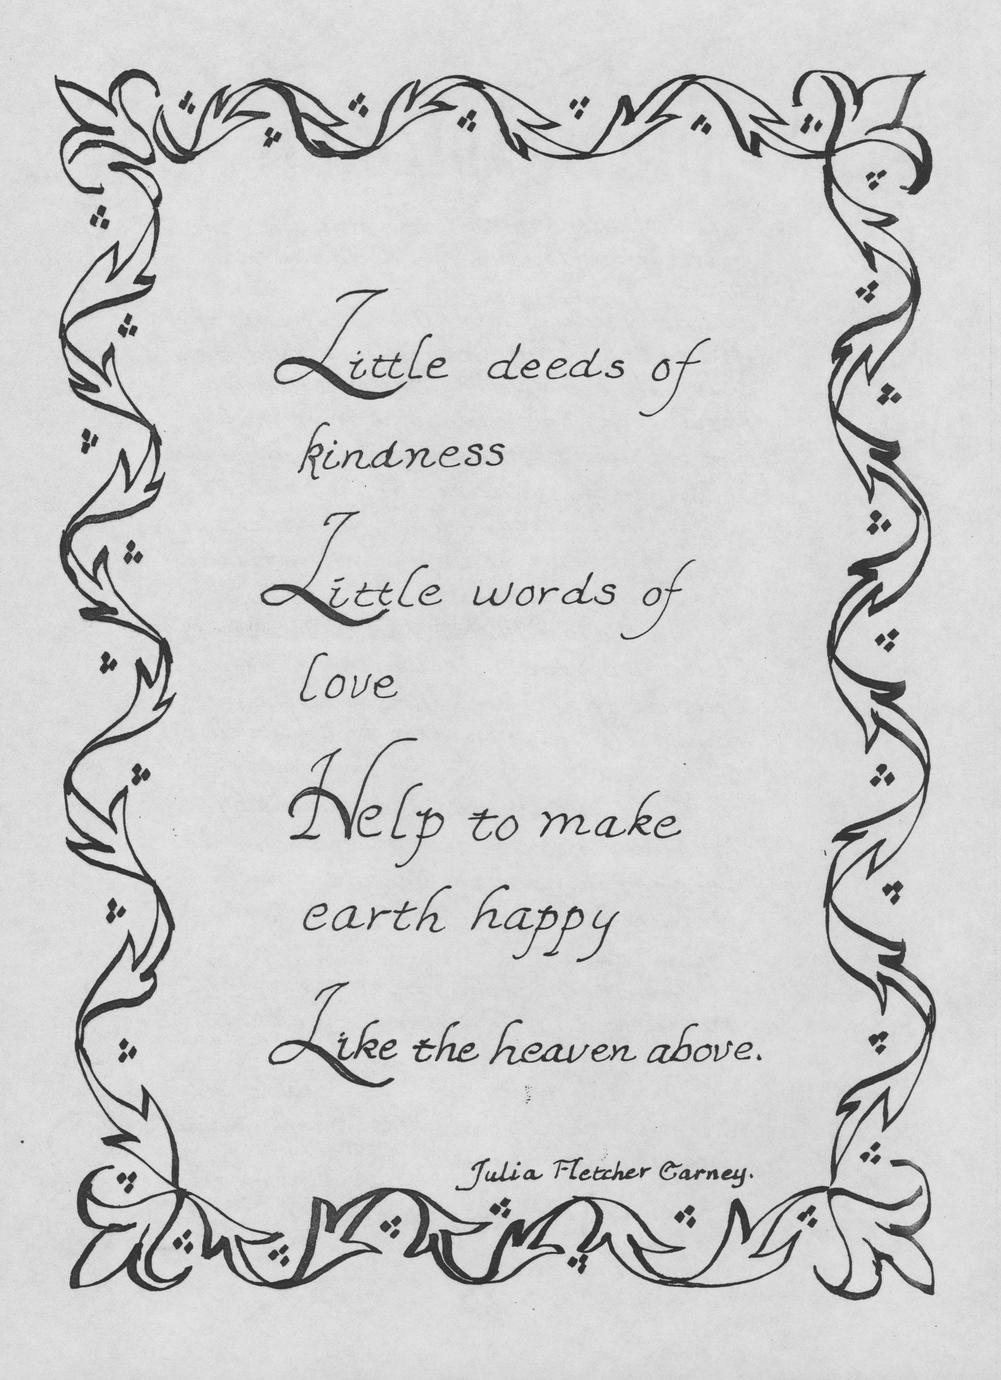 Little deeds of
kindness
Little words of
love
Help to make
earth happy
Like the heaven above.
Julia Fletcher Carney.